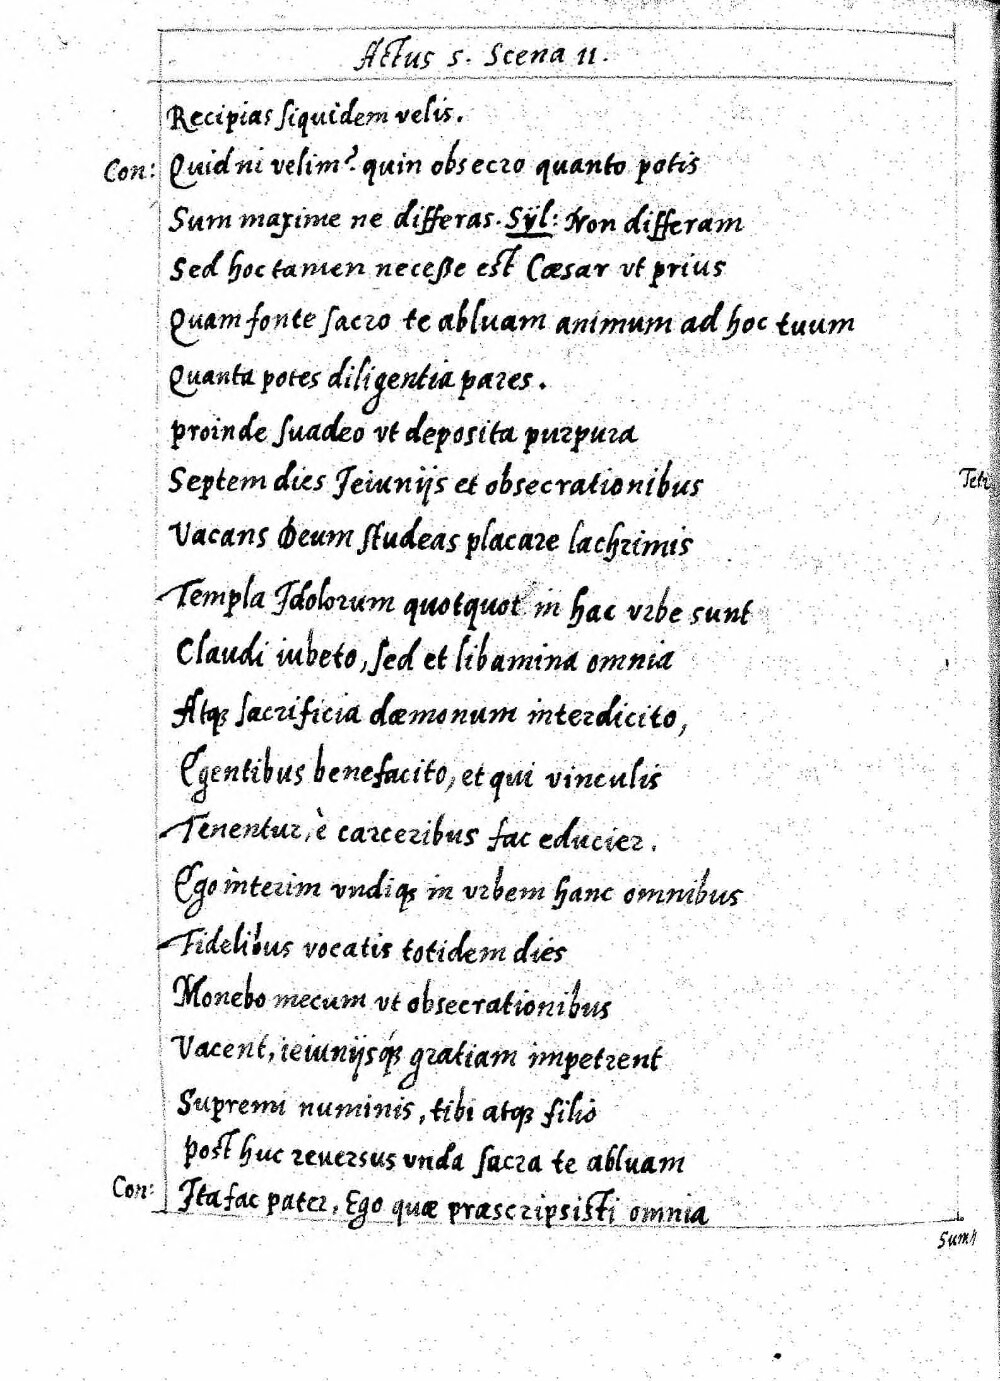 Actus 5. Scena 11.
Recipias siquidem velis.
Con: Quid ni velim? quin obsecro quanto potis
Sum maxime ne differas. Syl: Non differam
Sed hoc tamen necesse est Cæsar vt prius
Quam fonte sacro te abluam animum ad hoc tuum
Quanta potes diligentia pares.
proinde suadeo vt deposita purpura
Septem dies Jeiunijs et obsecrationibus
Vacans Deum studeas placare lachrimis
Templa Idolorum quotquot in hac vrbe sunt
Claudi iubeto, sed et libamina omnia
Atqꝫ sacrificia dæmonum interdicito,
Egentibus benefacito, et qui vinculis
Tenentur, è carceribus fac educier.
Ego interim vndiqꝫ in vrbem hanc omnibus
Fidelibus vocatis totidem dies
Monebo mecum vt obsecrationibus
Vacent, ieiunijsqꝫ gratiam impetrent
Supremi numinis, tibi atqꝫ filio
Post huc reuersus vnda sacra te abluam
Con: Ita fac pater, Ego quæ præscripsisti omnia
Sum